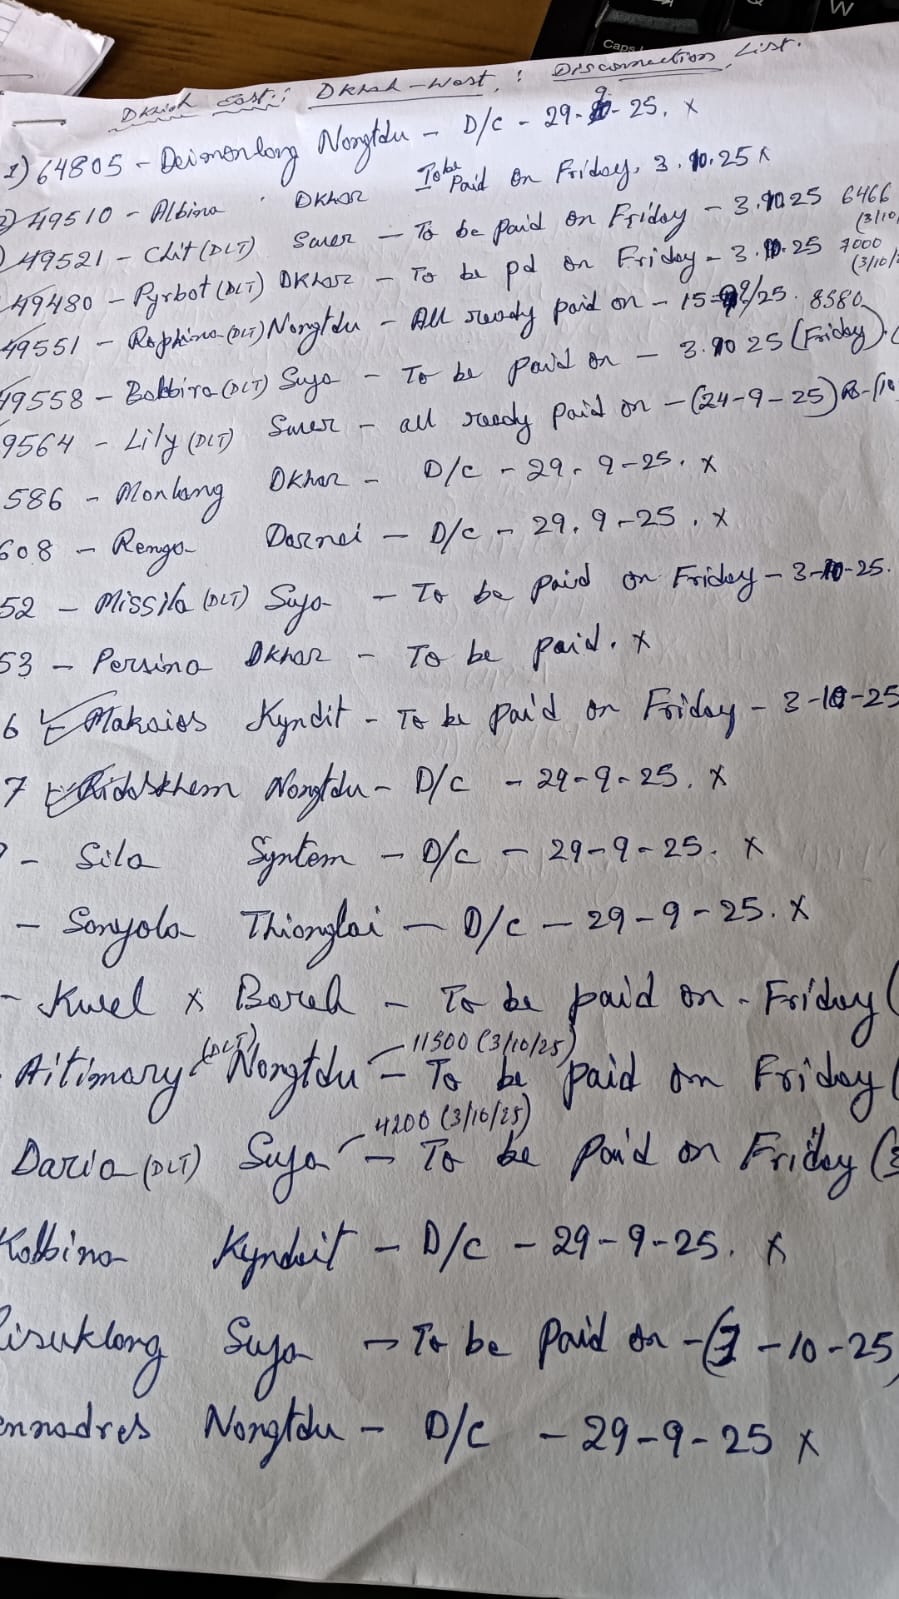 Dkhiah East : Dkhiah-West : Disconnection List.
1) 64805 - Deimonlang Nongtdu - D/c - 29-9-25. x
49510 - Albina Dkhar To be Paid on Friday, 3.10.25 x
49521 - Chit (DLT) Suer - To be paid on Friday - 3.10.25 6466 (3/10
49480 - Pyrbot (DLT) Dkhar - To be pd on Friday - 3.10.25 7000 (3/10/2
49551 - Rophina (DLT) Nongtdu - All ready paid on - 15-9/25. 8580
49558 - Balbira (DLT) Suja - To be paid on - 3.10 25 (Friday).
9564 - Lily (DLT) Suer - all ready paid on - (24-9-25)
586 - Monlang Dkhar - D/c - 29. 9-25. x
608 - Renga Darnei - D/c - 29. 9-25. x
52 - Missila (DLT) Suja - To be paid on Friday - 3-10-25.
53 - Persina Dkhar - To be paid. x
6 Makaios Kyndit - To be paid on Friday - 3-10-25
7 Nongtdu - D/c - 29-9-25. x
- Sila Syntem - D/c - 29-9-25. x
- Sonyola Thianglai - D/c - 29-9-25. x
- Kwel x Bareh - To be paid on - Friday (
11500 (3/10/25)
Aitimary (DLT) Nongtdu - To be paid on Friday (
4200 (3/10/25)
Daria (DLT) Suja - To be Paid on Friday (3
Kolbina Kynduit - D/c - 29-9-25. x
isuklang Suja - To be Paid on - (3 - 10-25
nnadres Nongtdu - D/c - 29-9-25 x